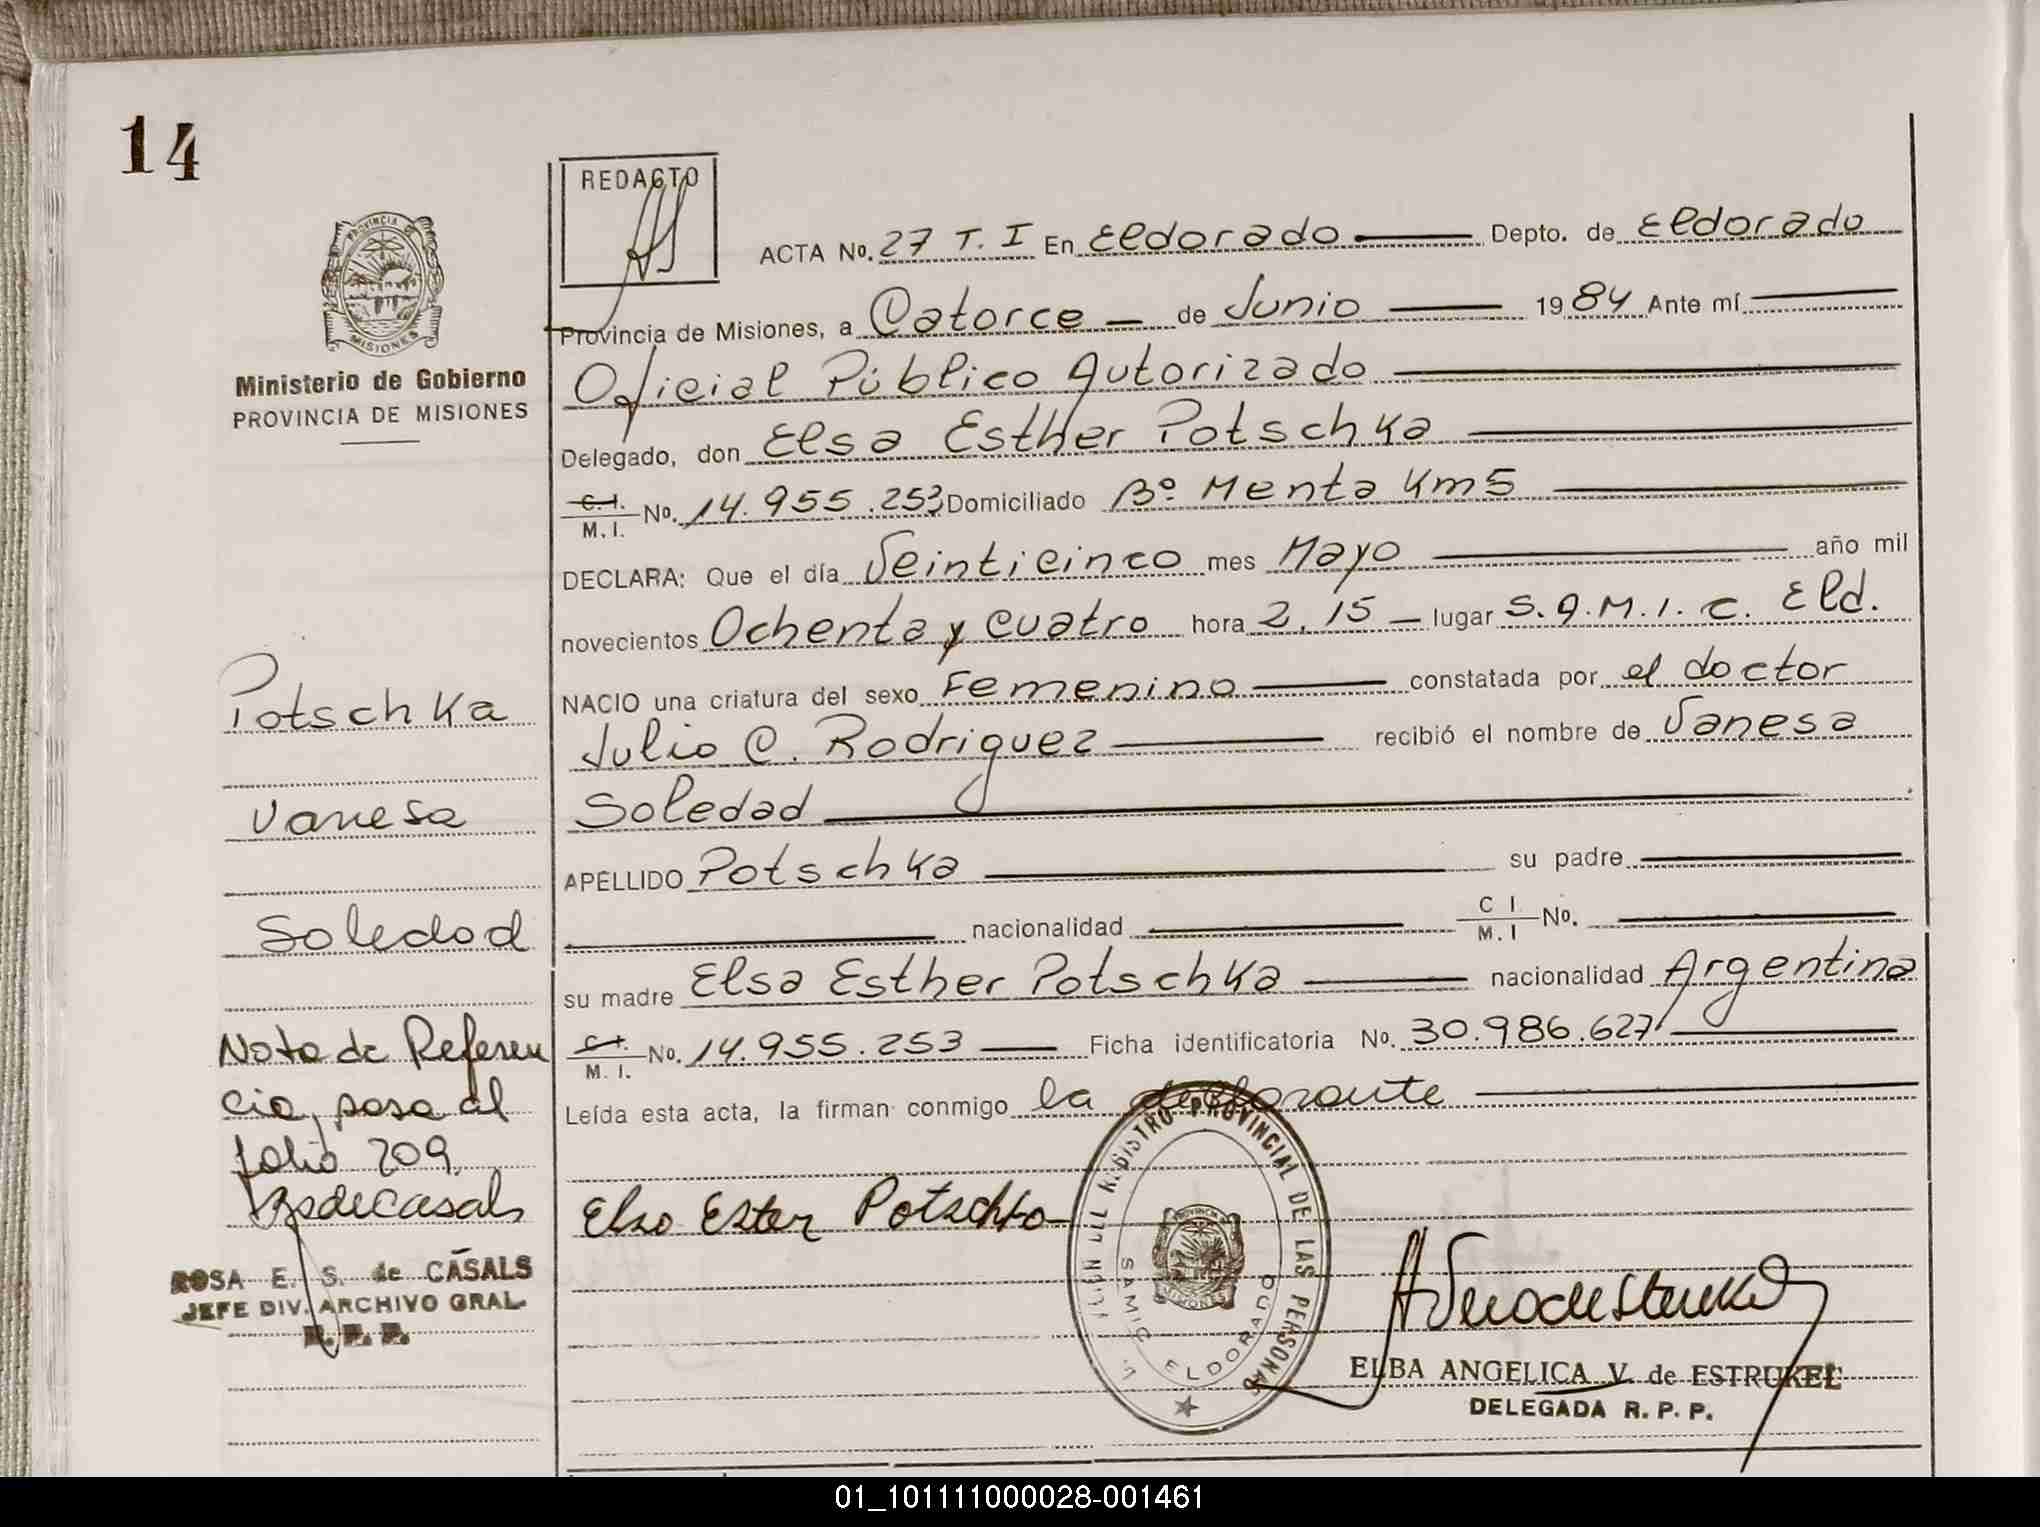 14
PROVINCIA DE
MISIONES
Ministerio de Gobierno
PROVINCIA DE MISIONES
REDACTO
ACTA No. 27 T. I En Eldorado Depto. de Eldorado
Provincia de Misiones, a Catorce — de Junio 1984 Ante mí
Oficial Público Autorizado
Delegado, don Elsa Esther Potschka
C.I.
M.I. No. 14.955.253 Domiciliado Bº Menta Km5
DECLARA: Que el día Veinticinco mes Mayo año mil
novecientos Ochenta y Cuatro hora 2,15 — lugar S.A.M.I.C. Eld.
NACIO una criatura del sexo Femenino constatada por el doctor
Julio C. Rodriguez recibió el nombre de Vanesa
Soledad
APELLIDO Potschka su padre
nacionalidad C I. M.I No.
su madre Elsa Esther Potschka nacionalidad Argentina
C.I.
M. I. No. 14.955.253 Ficha identificatoria No. 30.986.627
Leída esta acta, la firman conmigo la declarante
Potschka
Vanesa
Soledad
Nota de Referen
cia, pasa al
folio 209.
RsdeCasals
ROSA E. S. de CASALS
JEFE DIV. ARCHIVO GRAL.
R. P. P.
Elsa Ester Potschka
REGISTRO PROVINCIAL DE LAS PERSONAS
SAMIC ELDORADO
PROVINCIA
MISIONES
ELBA ANGELICA V. de ESTRUKEL
DELEGADA R. P. P.
01_101111000028-001461